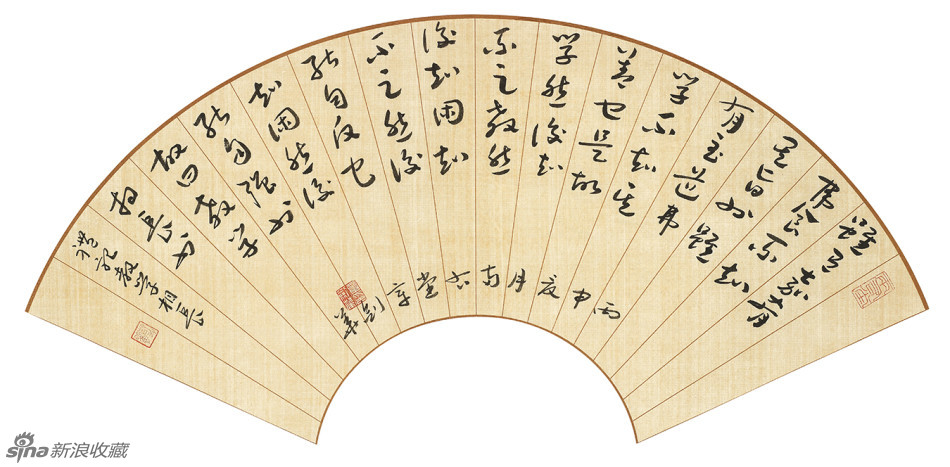 雖有嘉肴
弗食不知
其旨也雖
有至道弗
學不知其
善也是故
學然後知
不足教然
後知困知
不足然後
能自反也
知困然後
能自強也
故曰教學
相長也
禮記教學相長
丙申夏月
sina新浪收藏